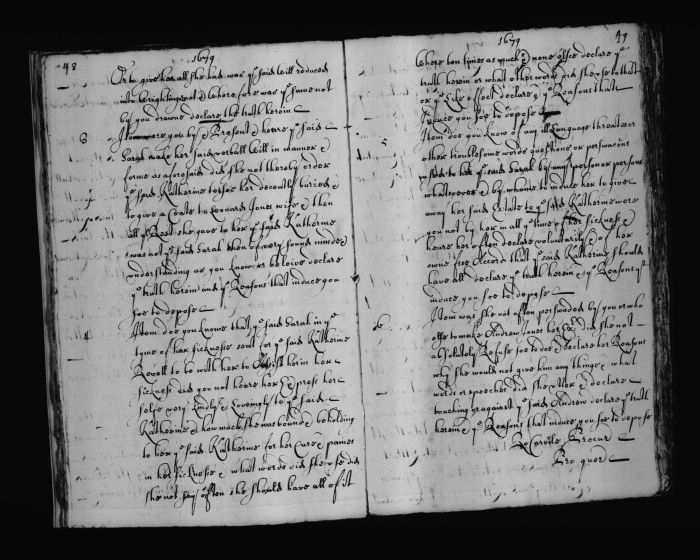 48
1679
Or to give her all she had was ye said Will reduced
into writeing or not & wherefore was ye same not
by you drawne declare the truth herein
3
Item were you by & present & heare ye said
Sarah make her said verball Will in manner &
forme as aforesaid did she not thereby order
ye said Katherine to see her decently buried &
to give a Coate to Edwards Jones wife & then
all ye Rest she gave to her ye said Katherine
was not ye said Sarah then of very sound minde &
understanding as you know or beleive declare
ye truth herein and ye Reasons that induce you
soe to depose
4
Item doe you knowe that ye said Sarah in ye
tyme of her sicknesse sent for ye said Katherine
to be with her to Assist her in her
sicknesse did you not heare her Express her
selfe very kindly & Lovingly to ye said
Katherine & how much she was bound & beholding
to her ye said Katherine for her Care & paines
in her sicknesse & what words did she use did
she not say often she should have all of it
1679
49
were ten times as much & none else declare ye
truth herein or what other words did she use to that
or ye Like effect declare ye Reasons that
induce you soe to depose
5
Item doe you know of any ill Language threats or
other troublesome words questions or perswacons
used to her ye said Sarah by any person or persons
whatsoever & by whome to induce her to give
away her said Estate to ye said Katherine were
you not by her in all ye time of her sicknesse &
heare her often declare voluntarily & of her
owne free Accord that ye said Katherine should
have all declare ye truth herein & ye Reasons yt
induce you soe to depose
6
Item was she not often perswaded by you or who
else to make Andrew Jones her & did she not
absolutely Refuse soe to doe & declare her Reasons
why she would not give him any thinge & what
words or speeches did she utter & declare
touching or against ye said Andrew declare ye truth
herein & ye Reasons that induce you soe to depose
Procur
Pro quer